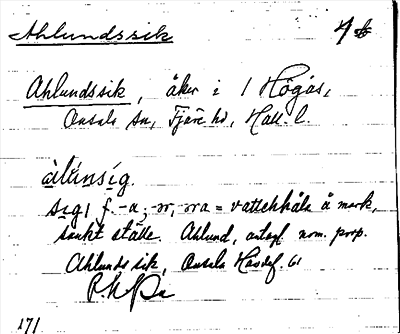 Ahlundssik
Ahlundssik, åker i 1 Högås,
Onsala sn, Fjäre hd, Hall. l.
àlúnsíg.
sig, f. -a; -ır, -ıra = vattenhåla å mark,
sankt ställe. Ahlund, antagl. nom. prop.
Ahlunds sik, Onsala Hasdef. 61
171